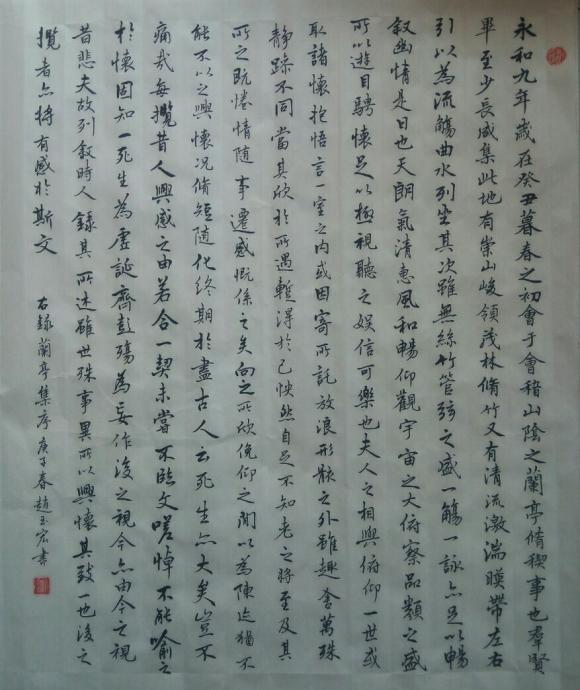 永和九年歲在癸丑暮春之初會于會稽山陰之蘭亭脩稧事也羣賢
畢至少長咸集此地有崇山峻領茂林脩竹又有清流激湍暎帶左右
引以為流觴曲水列坐其次雖無絲竹管弦之盛一觴一詠亦足以暢
敘幽情是日也天朗氣清惠風和暢仰觀宇宙之大俯察品類之盛
所以遊目騁懷足以極視聽之娛信可樂也夫人之相與俯仰一世或
取諸懷抱悟言一室之內或因寄所託放浪形骸之外雖趣舍萬殊
靜躁不同當其欣於所遇暫得於己怏然自足不知老之將至及其
所之既惓情隨事遷感慨係之矣向之所欣俛仰之閒以為陳迹猶不
能不以之興懷況脩短隨化終期於盡古人云死生亦大矣豈不
痛哉每攬昔人興感之由若合一契未嘗不臨文嗟悼不能喻之
於懷固知一死生為虛誕齊彭殤為妄作後之視今亦由今之視
昔悲夫故列敘時人錄其所述雖世殊事異所以興懷其致一也後之
攬者亦將有感於斯文 右錄蘭亭集序庚子春趙玉宏書